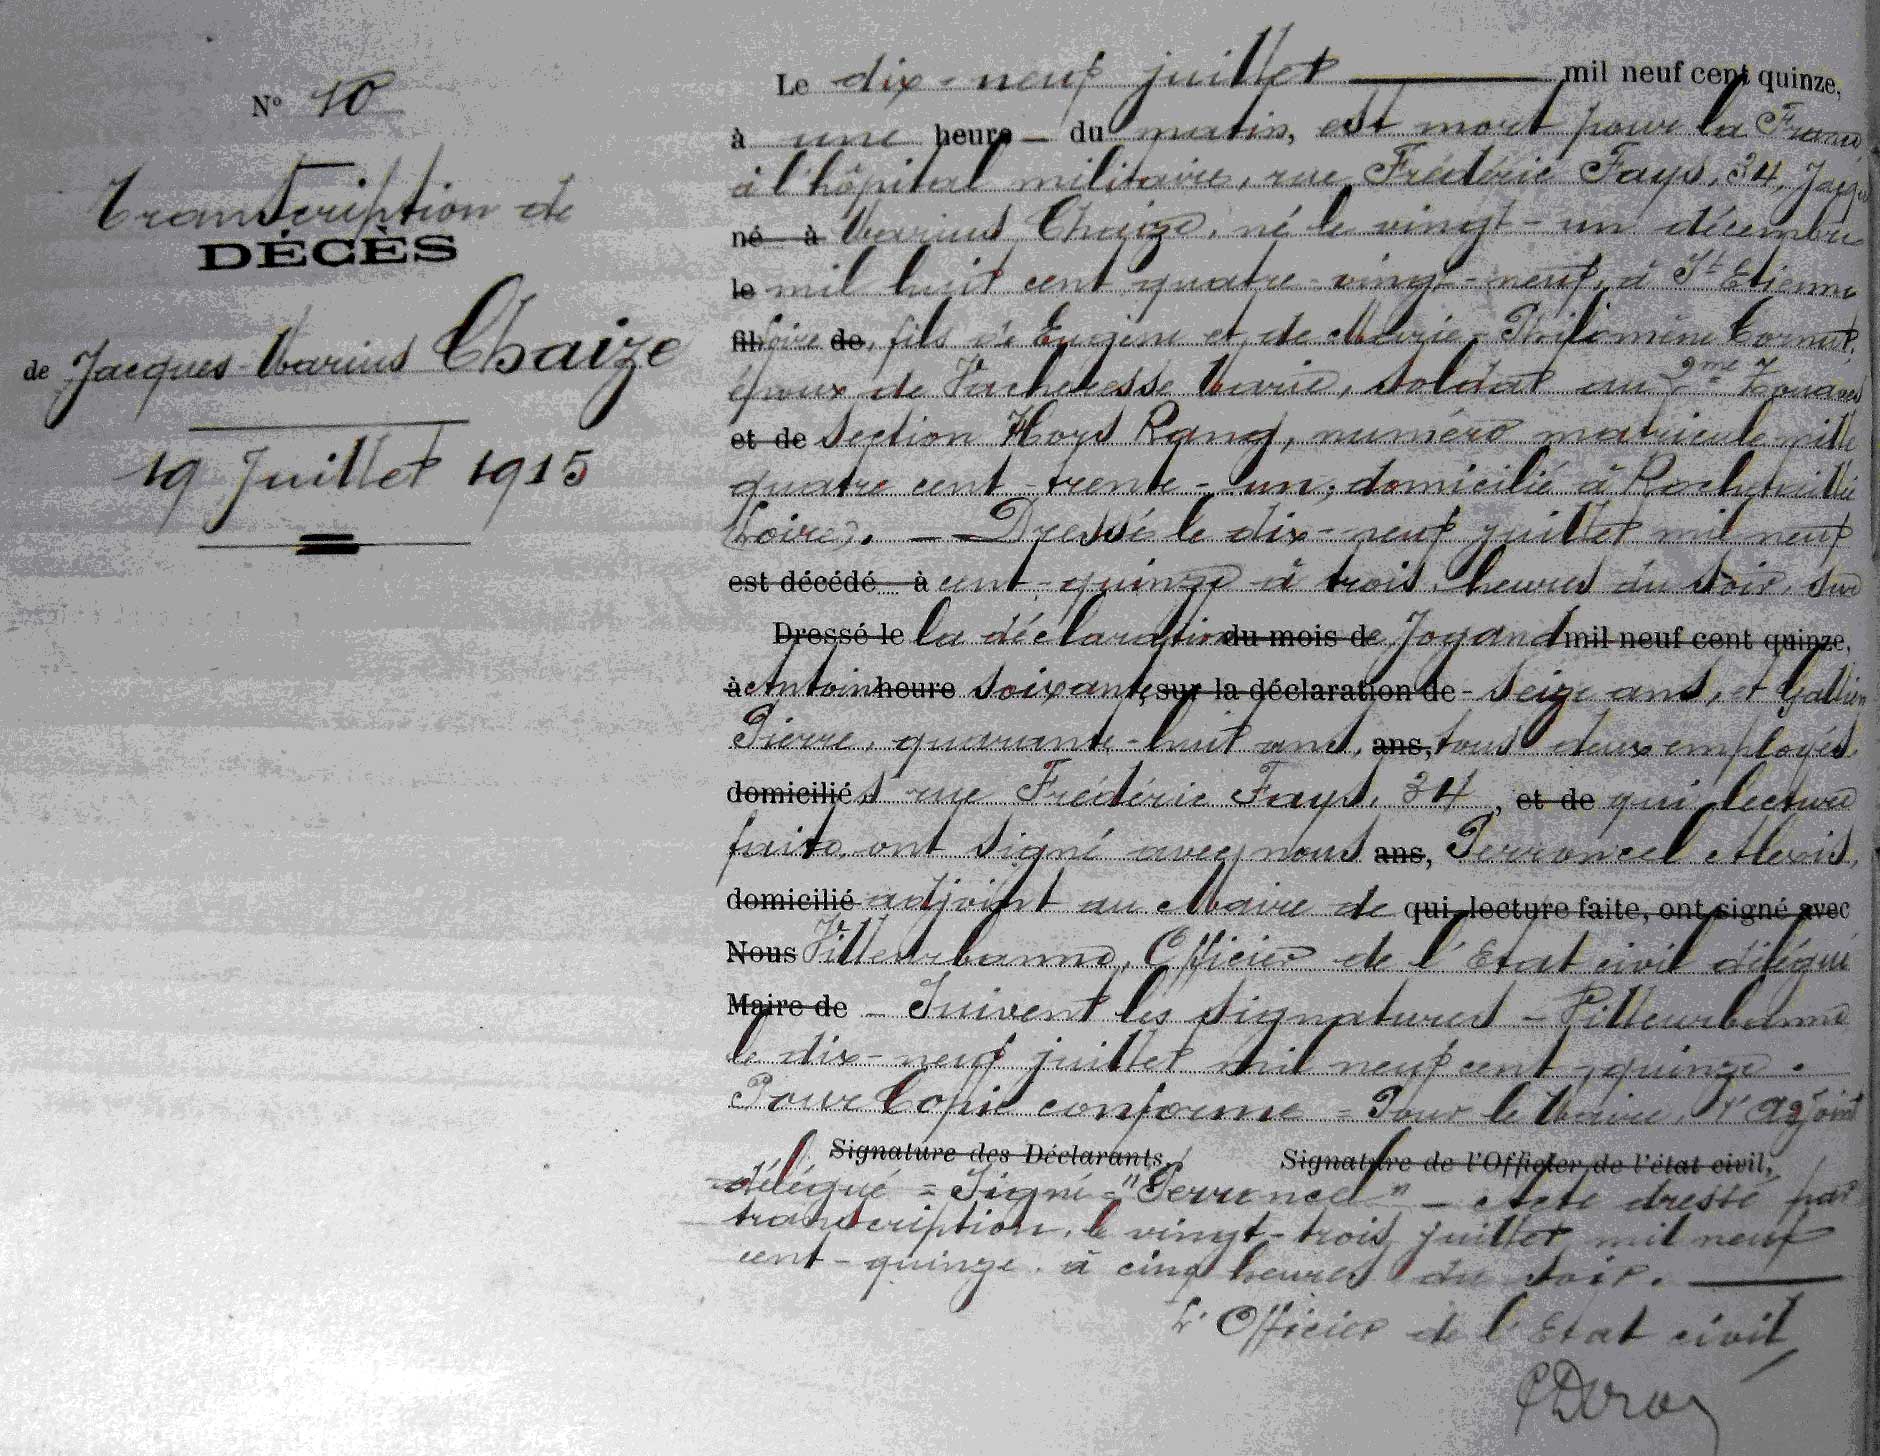 N° 10
Transcription de
DÉCÈS
de Jacques Marius Chaize
19 Juillet 1915
Le dix-neuf juillet mil neuf cent quinze,
à une heure du matin, est mort pour la France
à l'hôpital militaire, rue Frédéric Fays, 34, Jacques
né à Marius Chaize, né le vingt-un décembre
le mil huit cent quatre-vingt-neuf, à St Etienne
fils Loire de, fils de Eugène et de Marie-Philomène Cornut,
époux de Vacheresse Marie, soldat au 2me Zouaves
et de Section Hors Rang, numéro matricule mille
quatre cent-trente-un, domicilié à Rochetaillée
Loire). — Dressé le dix-neuf juillet mil neuf
est décédé à cent-quinze à trois heures du soir, sur
Dressé le la déclaration du mois de Joyand mil neuf cent quinze,
à Antoine heure soixante sur la déclaration de - seize ans, et Gallien
Pierre, quarante-huit ans, ans, tous deux employés
domiciliés rue Frédéric Fays, 34, et de qui lecture
faite, ont signé avec nous ans, Perroncel Alexis,
domicilié adjoint au Maire de qui lecture faite, ont signé avec
Nous Villeurbanne, Officier de l'Etat civil délégué
Maire de - Suivent les signatures - Villeurbanne
le dix-neuf juillet mil neuf cent quinze.
Pour Copie conforme = Pour le Maire, l'adjoint
Signature des Déclarants, Signature de l'Officier de l'état civil,
délégué = Signé = "Perroncel" - Acte dressé par
transcription, le vingt-trois juillet mil neuf
cent-quinze à cinq heures du soir.
L'Officier de l'Etat civil